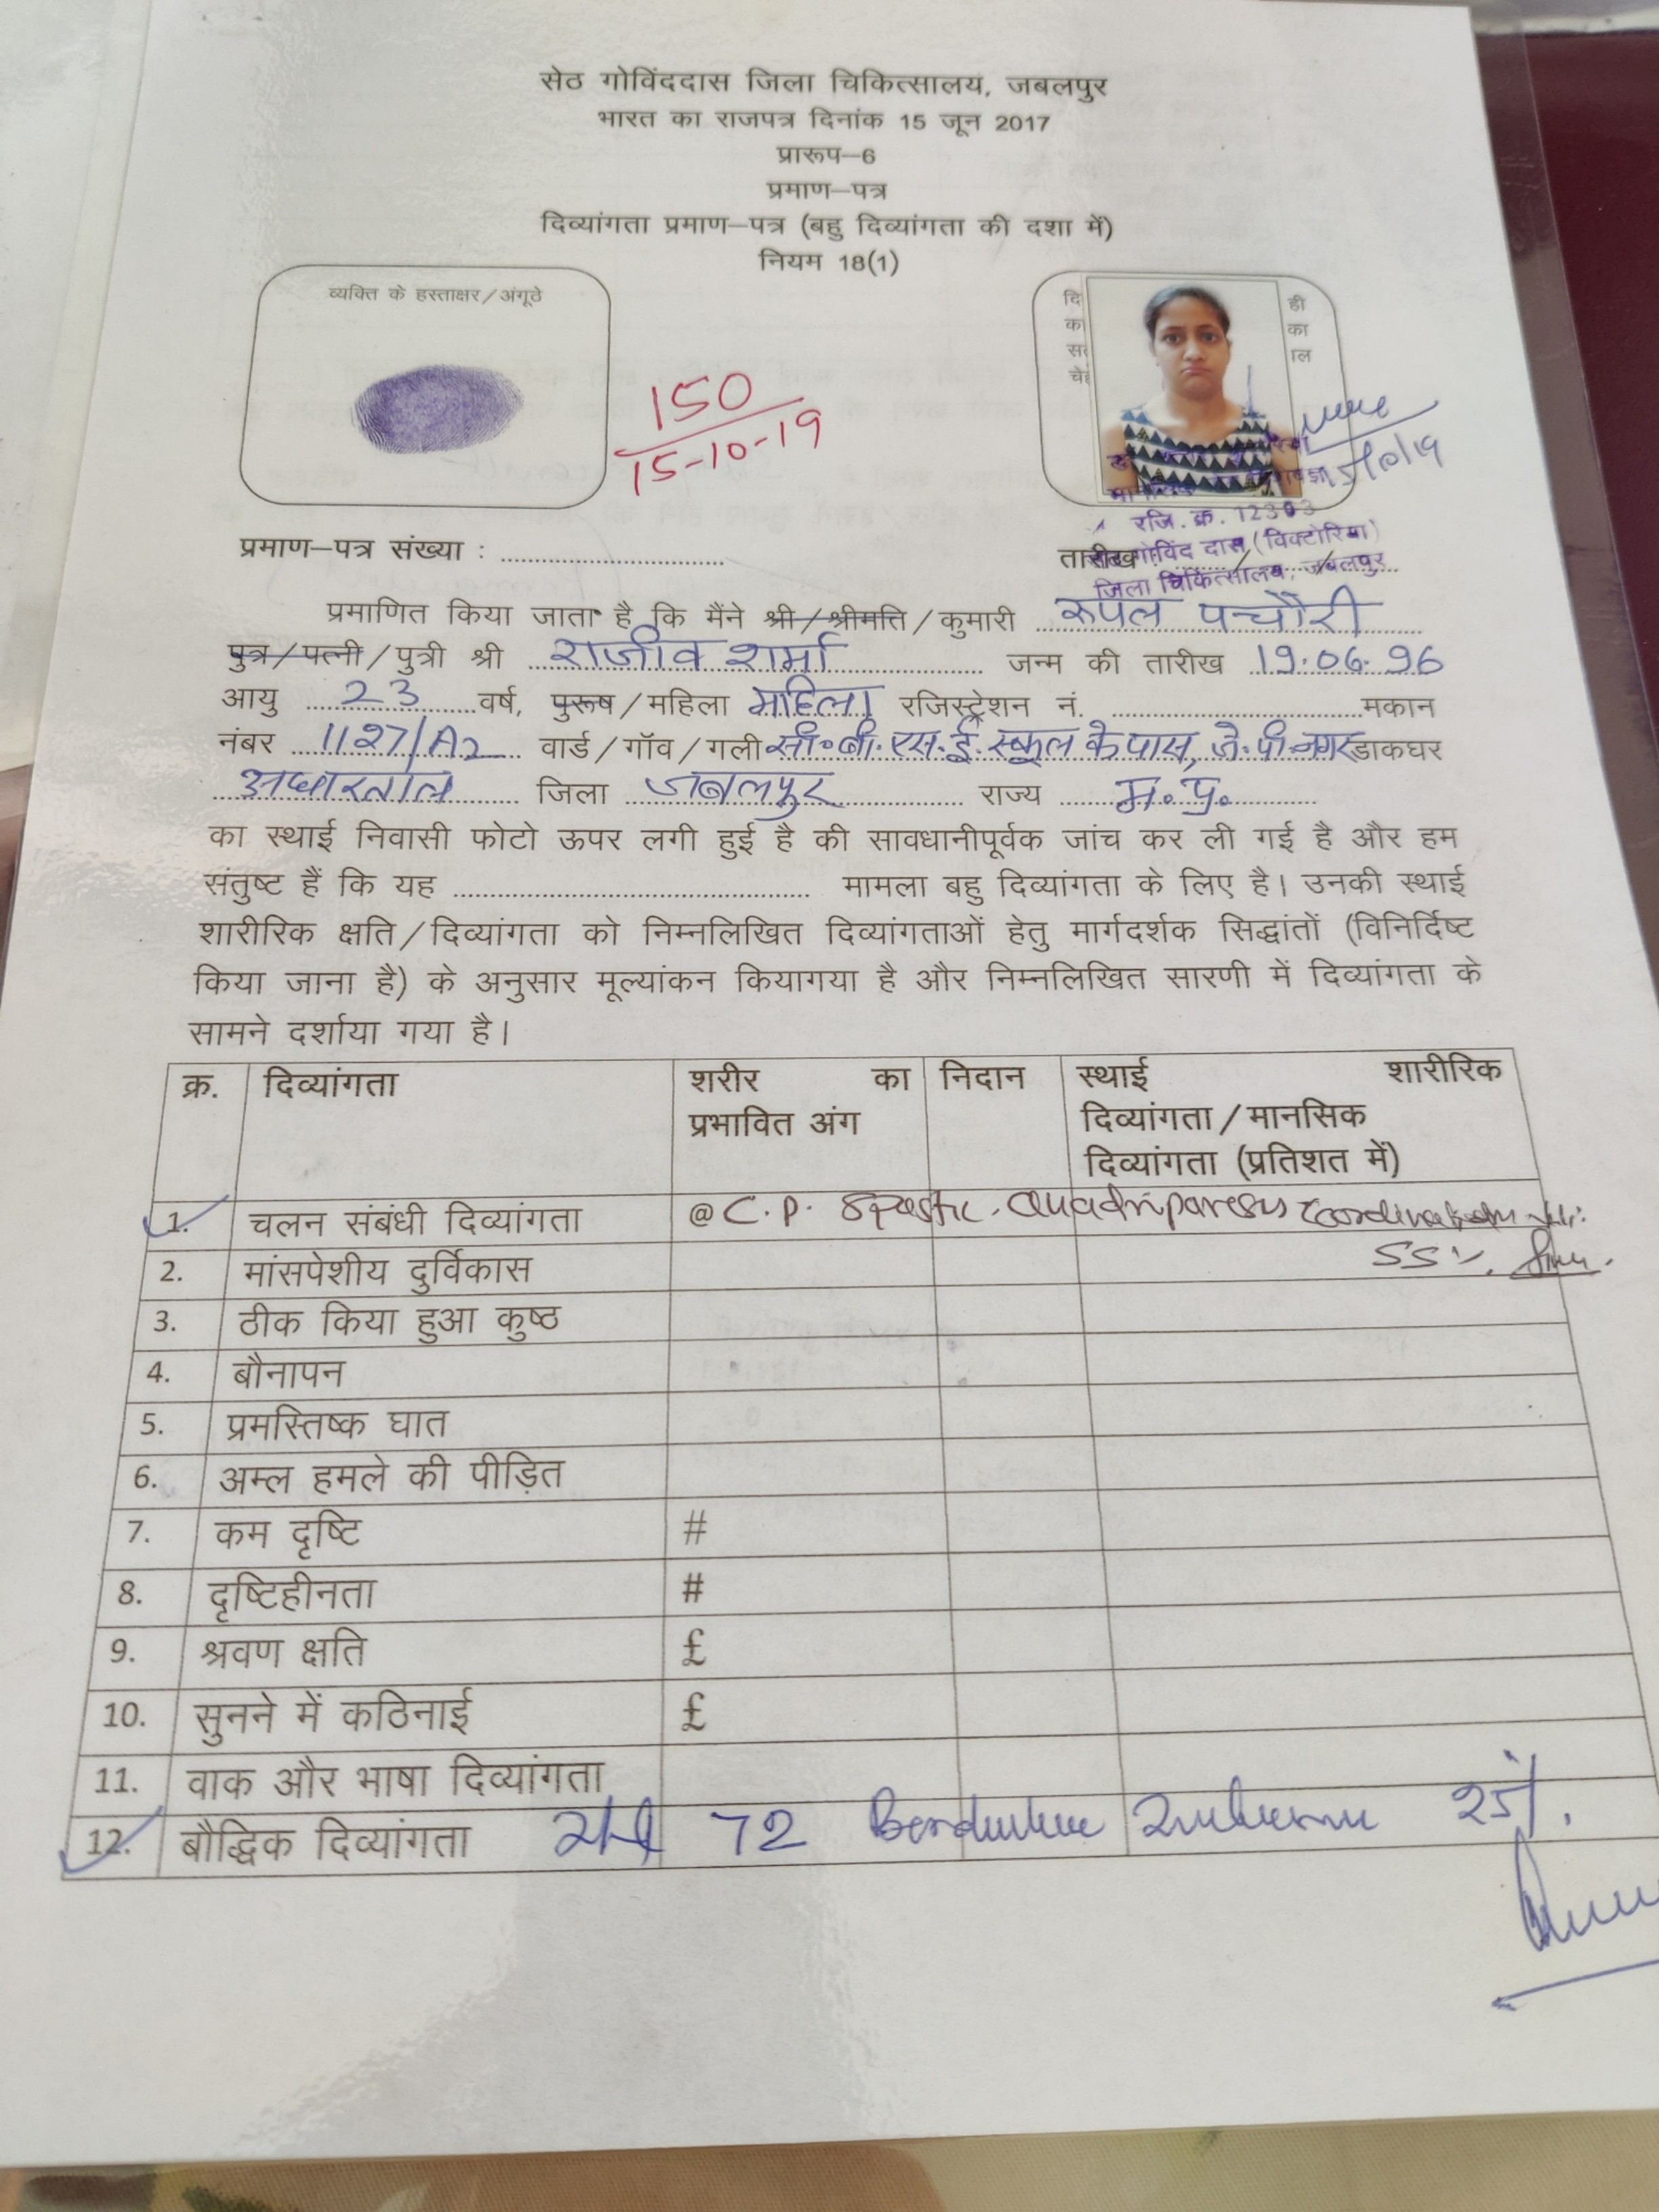 सेठ गोविंददास जिला चिकित्सालय, जबलपुर
भारत का राजपत्र दिनांक 15 जून 2017
प्रारूप–6
प्रमाण–पत्र
दिव्यांगता प्रमाण–पत्र (बहु दिव्यांगता की दशा में)
नियम 18(1)
व्यक्ति के हस्ताक्षर/अंगूठे
दि ही
क का
स ाल
चे
150
15-10-19
15/10/19
रजि. क्र. 12303
गोविंद दास (विक्टोरिया)
जिला चिकित्सालय, जबलपुर
प्रमाण–पत्र संख्या : ............ तारीख
प्रमाणित किया जाता है कि मैंने श्री/श्रीमत्ति/कुमारी रूपल पचौरी
पुत्र/पत्नी/पुत्री श्री राजीव शर्मा जन्म की तारीख 19.06.96
आयु 23 वर्ष, पुरूष/महिला महिला रजिस्ट्रेशन नं. ............ मकान
नंबर 1127/A2 वार्ड/गॉव/गली सी.बी.एस.ई. स्कूल के पास, जे.पी.नगर डाकघर
अधारताल जिला जबलपुर राज्य म.प्र.
का स्थाई निवासी फोटो ऊपर लगी हुई है की सावधानीपूर्वक जांच कर ली गई है और हम
संतुष्ट हैं कि यह ............ मामला बहु दिव्यांगता के लिए है। उनकी स्थाई
शारीरिक क्षति/दिव्यांगता को निम्नलिखित दिव्यांगताओं हेतु मार्गदर्शक सिद्धांतों (विनिर्दिष्ट
किया जाना है) के अनुसार मूल्यांकन कियागया है और निम्नलिखित सारणी में दिव्यांगता के
सामने दर्शाया गया है।
क्र. दिव्यांगता शरीर का प्रभावित अंग निदान स्थाई शारीरिक दिव्यांगता/मानसिक दिव्यांगता (प्रतिशत में)
1. चलन संबंधी दिव्यांगता @ C.P. Spastic. Quadriparesis
55%.
2. मांसपेशीय दुर्विकास
3. ठीक किया हुआ कुष्ठ
4. बौनापन
5. प्रमस्तिष्क घात
6. अम्ल हमले की पीड़ित
7. कम दृष्टि #
8. दृष्टिहीनता #
9. श्रवण क्षति £
10. सुनने में कठिनाई £
11. वाक और भाषा दिव्यांगता
12. बौद्धिक दिव्यांगता 72 25%.